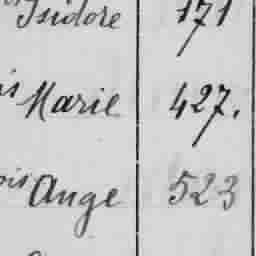 Isidore 171
is Marie 427.
ois Ange 523